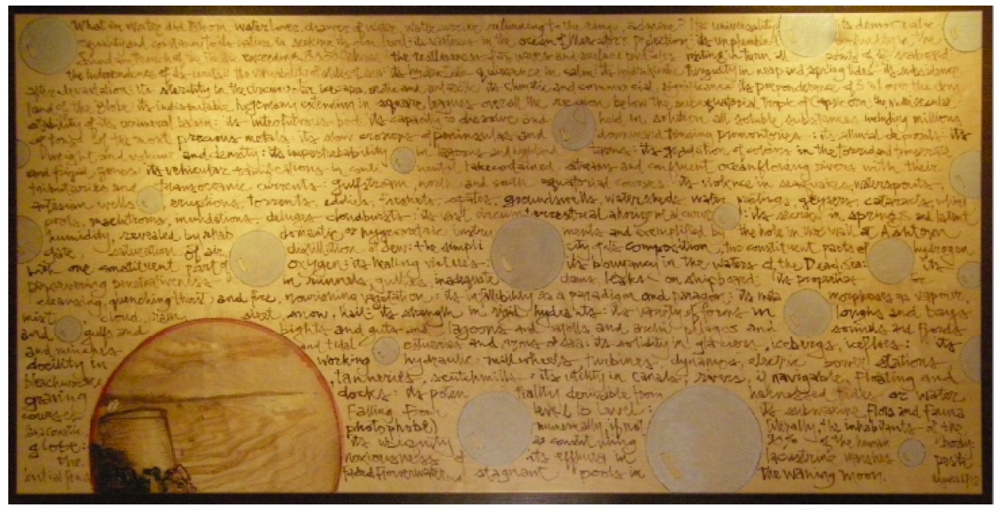 What in water did Bloom, waterlover, drawer of water, watercarrier, returning to the range, admire? Its universality: its democratic
equality and constancy to its nature in seeking its own level: its vastness in the ocean of Mercator's projection: its unplumbed profundity in the
Sundam trench of the Pacific exceeding 8000 fathoms: the restlessness of its waves and surface particles visiting in turn all points of its seaboard
the independence of its units: the variability of states of sea: its hydrostatic quiescence in calm: its hydrokinetic turgidity in neap and spring tides: its subsidence
after devastation: its sterility in the circumpolar icecaps, arctic and antarctic: its climatic and commercial significance: its preponderance of 3 to 1 over the dry
land of the globe: its indisputable hegemony extending in square leagues over all the region below the subequatorial tropic of Capricorn: the multisecular
stability of its primeval basin: its luteofulvous bed: its capacity to dissolve and hold in solution all soluble substances including millions
of tons of the most precious metals: its slow erosions of peninsulas and downward tending promontories: its alluvial deposits: its
weight and volume and density: its imperturbability in lagoons and highland tarns: its gradation of colours in the torrid and temperate
and frigid zones: its vehicular ramifications in conti nental lakecontained streams and confluent oceanflowing rivers with their
tributaries and transoceanic currents: gulfstream, north and south equatorial courses: its violence in seaquakes, waterspouts,
artesian wells eruptions, torrents, eddies, freshets, spates, groundswells, watersheds, water partings, geysers, cataracts, whirl
pools, maelstroms, inundations, deluges, cloudbursts: its vast circumterrestrial ahorizontal curve: its secrecy in springs and latent
humidity, revealed by rhab domantic or hygrometric instru ments and exemplified by the hole in the wall at Ashtown
gate, saturation of air, distillation of dew: the simpli city of its composition, two constituent parts of hydrogen
with one constituent part of oxygen: its healing virtues: its buoyancy in the waters of the Dead Sea: its
persevering penetrativeness in runnels, gullies, inadequate dams, leaks on shipboard: its properties for
cleansing, quenching thirst and fire, nourishing vegetation: its infallibility as a paradigm and paragon: its meta morphoses as vapour
mist cloud, rain, sleet snow, hail: its strength in rigid hydrants: its variety of forms in loughs and bays
and gulfs and bights and guts and lagoons and atolls and archi pelagos and sounds and fjords
and minches and tidal estuaries and arms of sea: its solidity in glaciers, icebergs, icefloes: its
docility in working hydraulic millwheels, turbines, dynamos, electric power stations
bleachworks, tanneries, scutchmills: its utility in canals, rivers, if navigable, floating and
graving docks: its poten tiality derivable from harnessed tides or water
courses falling from level to level: its submarine flora and fauna
(anacoustic, photophobe) numerically, if not literally, the inhabitants of the
globe: its ubiquity as constituting 90% of the human body:
the noxiousness of its effluvia in lacustrine marshes pesti
lential fens, faded flowerwater, stagnant pools in the waning moon.